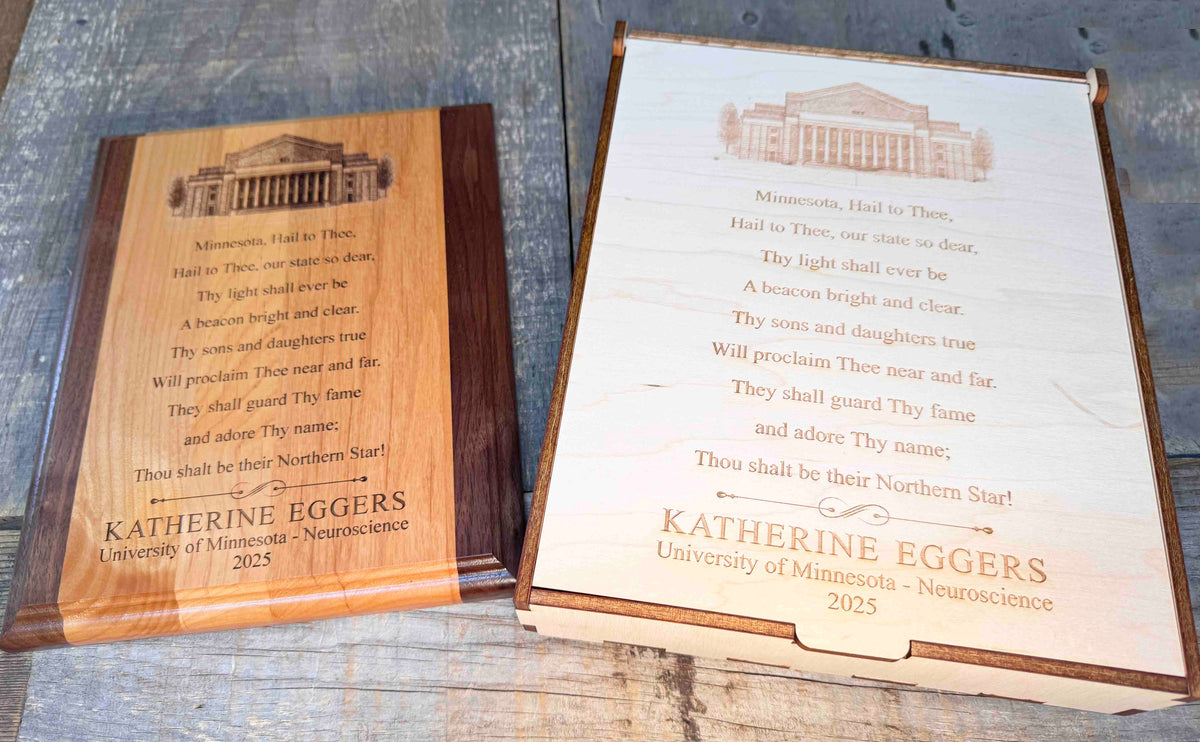 Minnesota, Hail to Thee,
Hail to Thee, our state so dear,
Thy light shall ever be
A beacon bright and clear.
Thy sons and daughters true
Will proclaim Thee near and far.
They shall guard Thy fame
and adore Thy name;
Thou shalt be their Northern Star!
KATHERINE EGGERS
University of Minnesota - Neuroscience
2025
Minnesota, Hail to Thee,
Hail to Thee, our state so dear,
Thy light shall ever be
A beacon bright and clear.
Thy sons and daughters true
Will proclaim Thee near and far.
They shall guard Thy fame
and adore Thy name;
Thou shalt be their Northern Star!
KATHERINE EGGERS
University of Minnesota - Neuroscience
2025